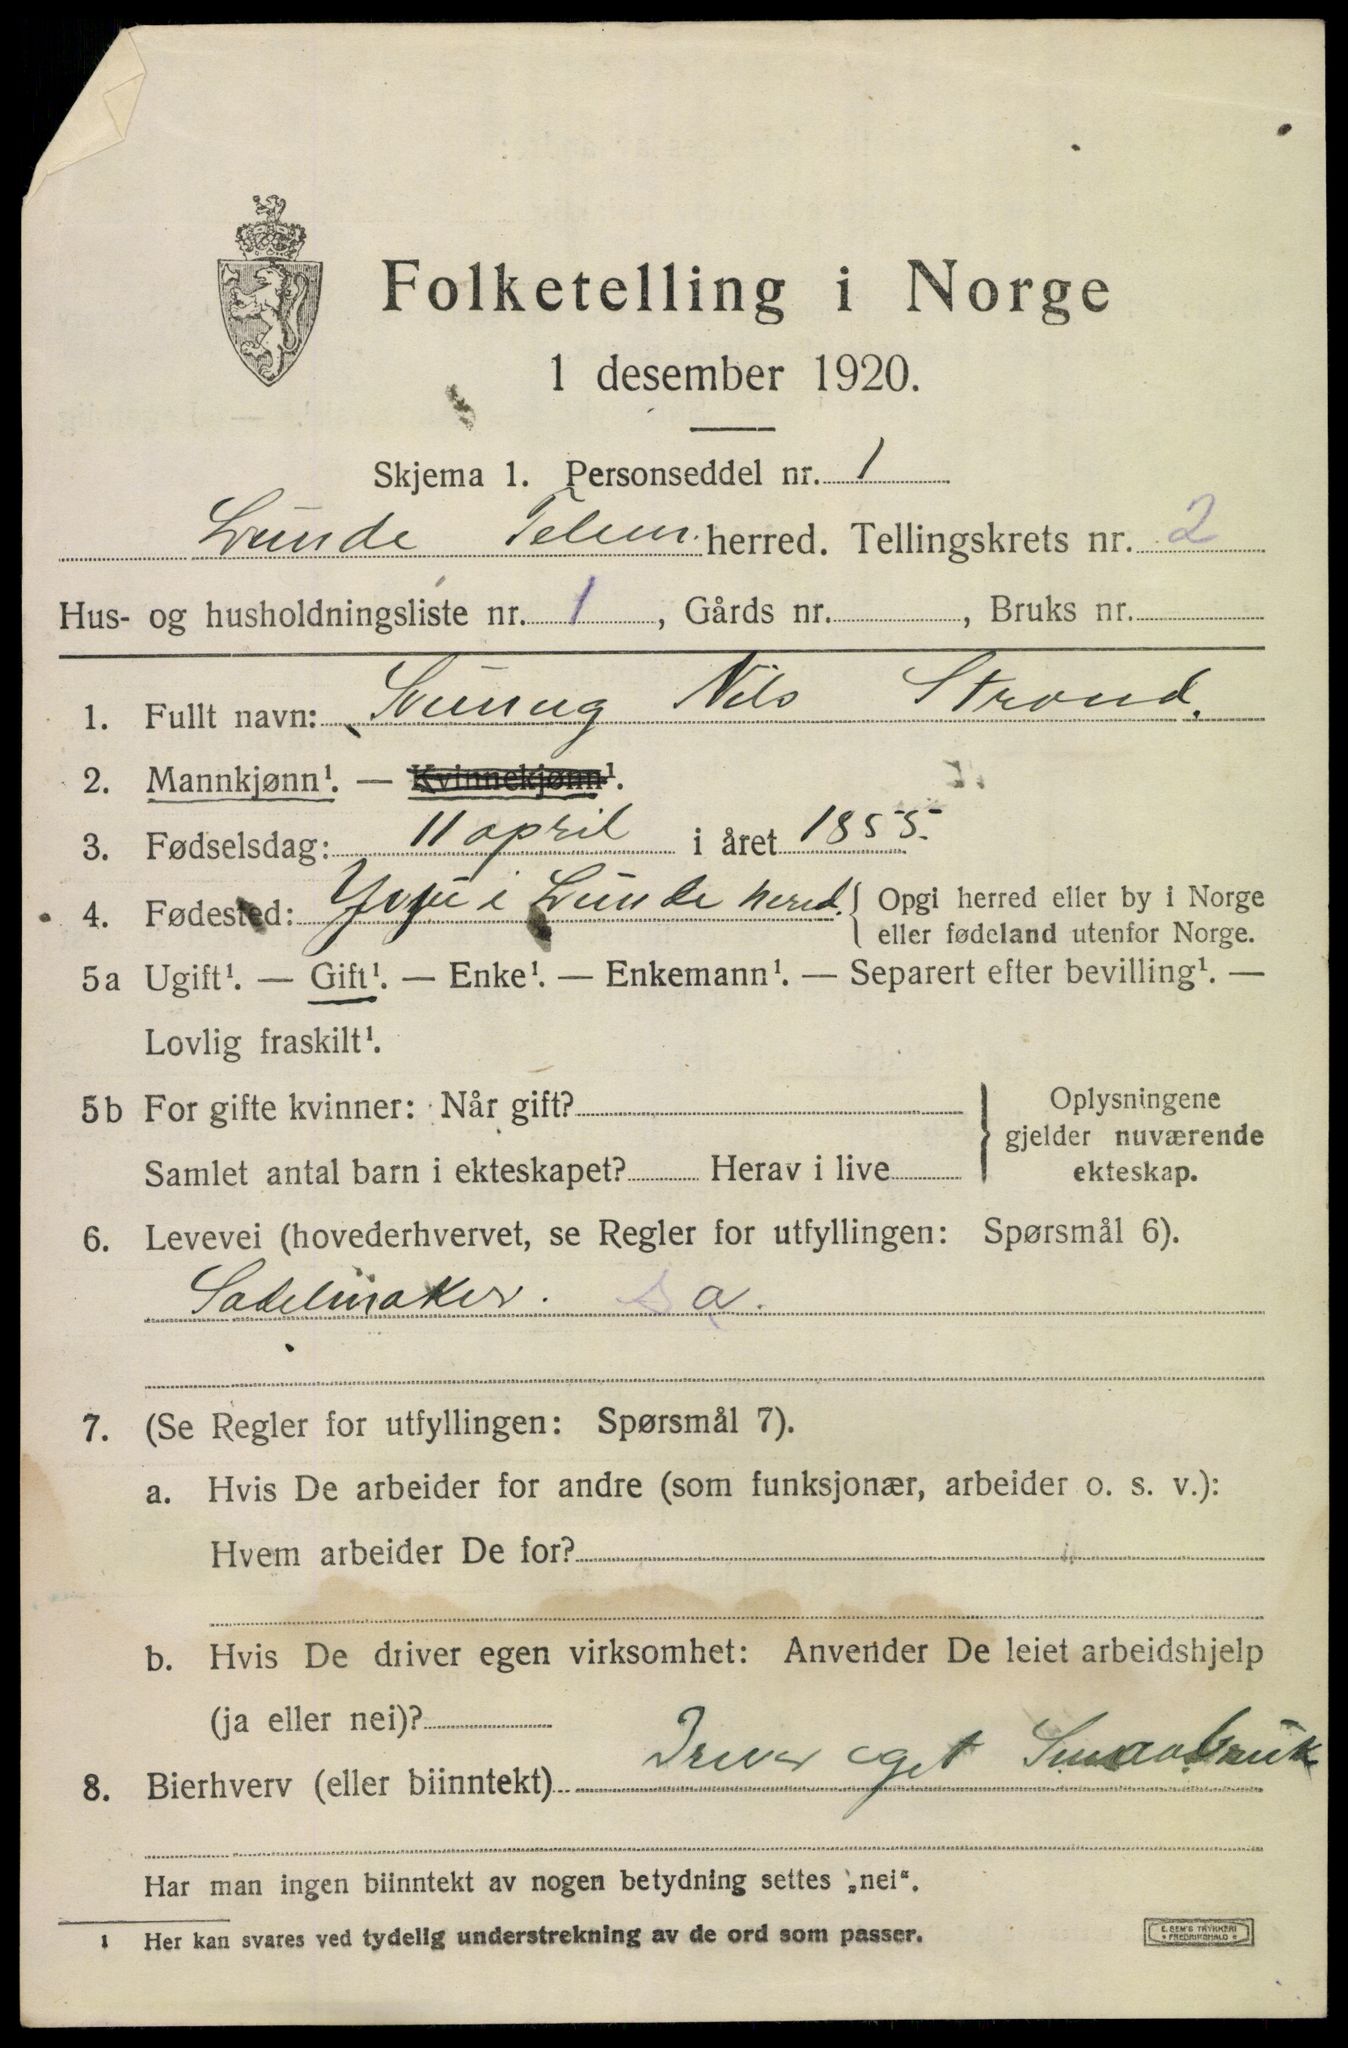 Folketelling i Norge
1 desember 1920.
Skjema 1. Personseddel nr. 1
Lunde Telem. herred. Tellingskrets nr. 2
Hus- og husholdningsliste nr. 1, Gårds nr. , Bruks nr.
1. Fullt navn: Nils Strond.
2. Mannkjønn¹. — Kvinnekjønn¹.
3. Fødselsdag: 11 april i året 1855.
4. Fødested: i Lunde herred. { Opgi herred eller by i Norge
eller fødeland utenfor Norge.
5a Ugift¹. — Gift¹. — Enke¹. — Enkemann¹. — Separert efter bevilling¹. —
Lovlig fraskilt¹.
5b For gifte kvinner: Når gift? } Oplysningene
gjelder nuværende
Samlet antal barn i ekteskapet? Herav i live ekteskap.
6. Levevei (hovederhvervet, se Regler for utfyllingen: Spørsmål 6).
Sadelmaker. a.
7. (Se Regler for utfyllingen: Spørsmål 7).
a. Hvis De arbeider for andre (som funksjonær, arbeider o. s. v.):
Hvem arbeider De for?
b. Hvis De driver egen virksomhet: Anvender De leiet arbeidshjelp
(ja eller nei)?
8. Bierhverv (eller biinntekt) Driver eget Smaabruk
Har man ingen biinntekt av nogen betydning settes „nei“.
¹ Her kan svares ved tydelig understrekning av de ord som passer.
E. SEM'S TRYKKERI
FREDRIKSHALD